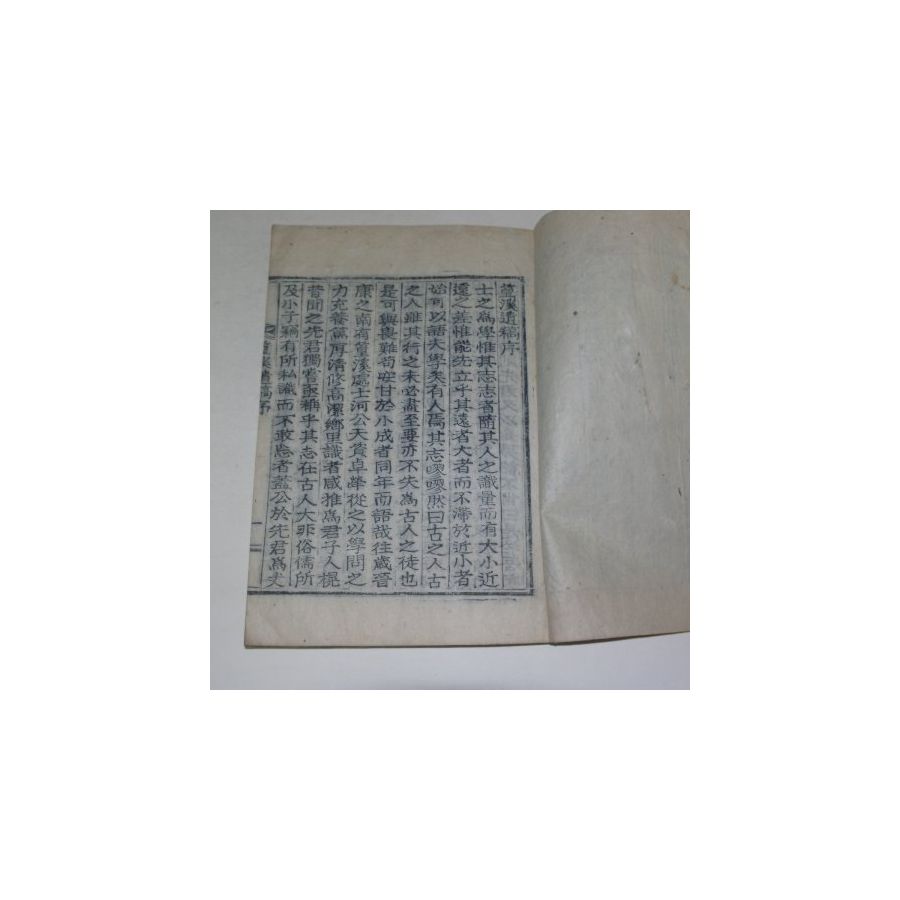 篔溪遺稿序
士之爲學惟其志志者隨其人之識量而有大小近
遠之差惟能先立乎其遠者大者而不滯於近小者
始可以語大學矣有人焉其志嘐嘐然曰古之人古
之人雖其行之未必盡至要亦不失爲古人之徒也
是可與畏難苟安甘於小成者同年而語哉往歲晉
康之南有篔溪處士河公天資卓犖從之以學問之
力充養篤厚清修高潔鄉里識者咸推爲君子人棍
昔聞之先君獨嘗亟稱乎其志在古人大非俗儒所
及小子竊有所私識而不敢忘者蓋公於先君爲丈
篔溪遺稿序